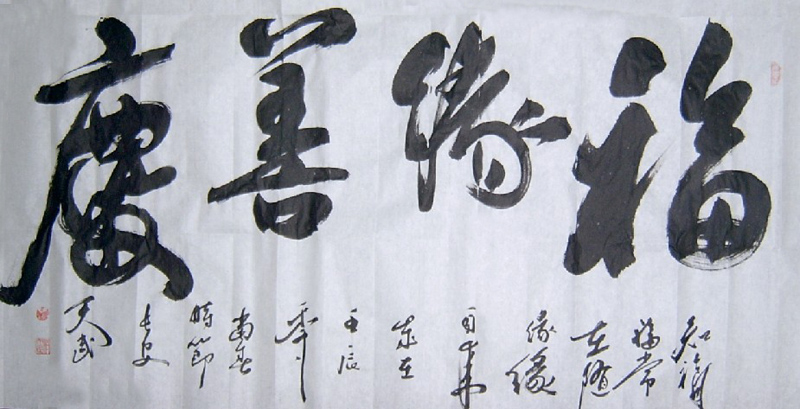 福緣善慶
知福
福常
在隨
緣緣
自来
在
壬辰
年
春
時節
長安
天武